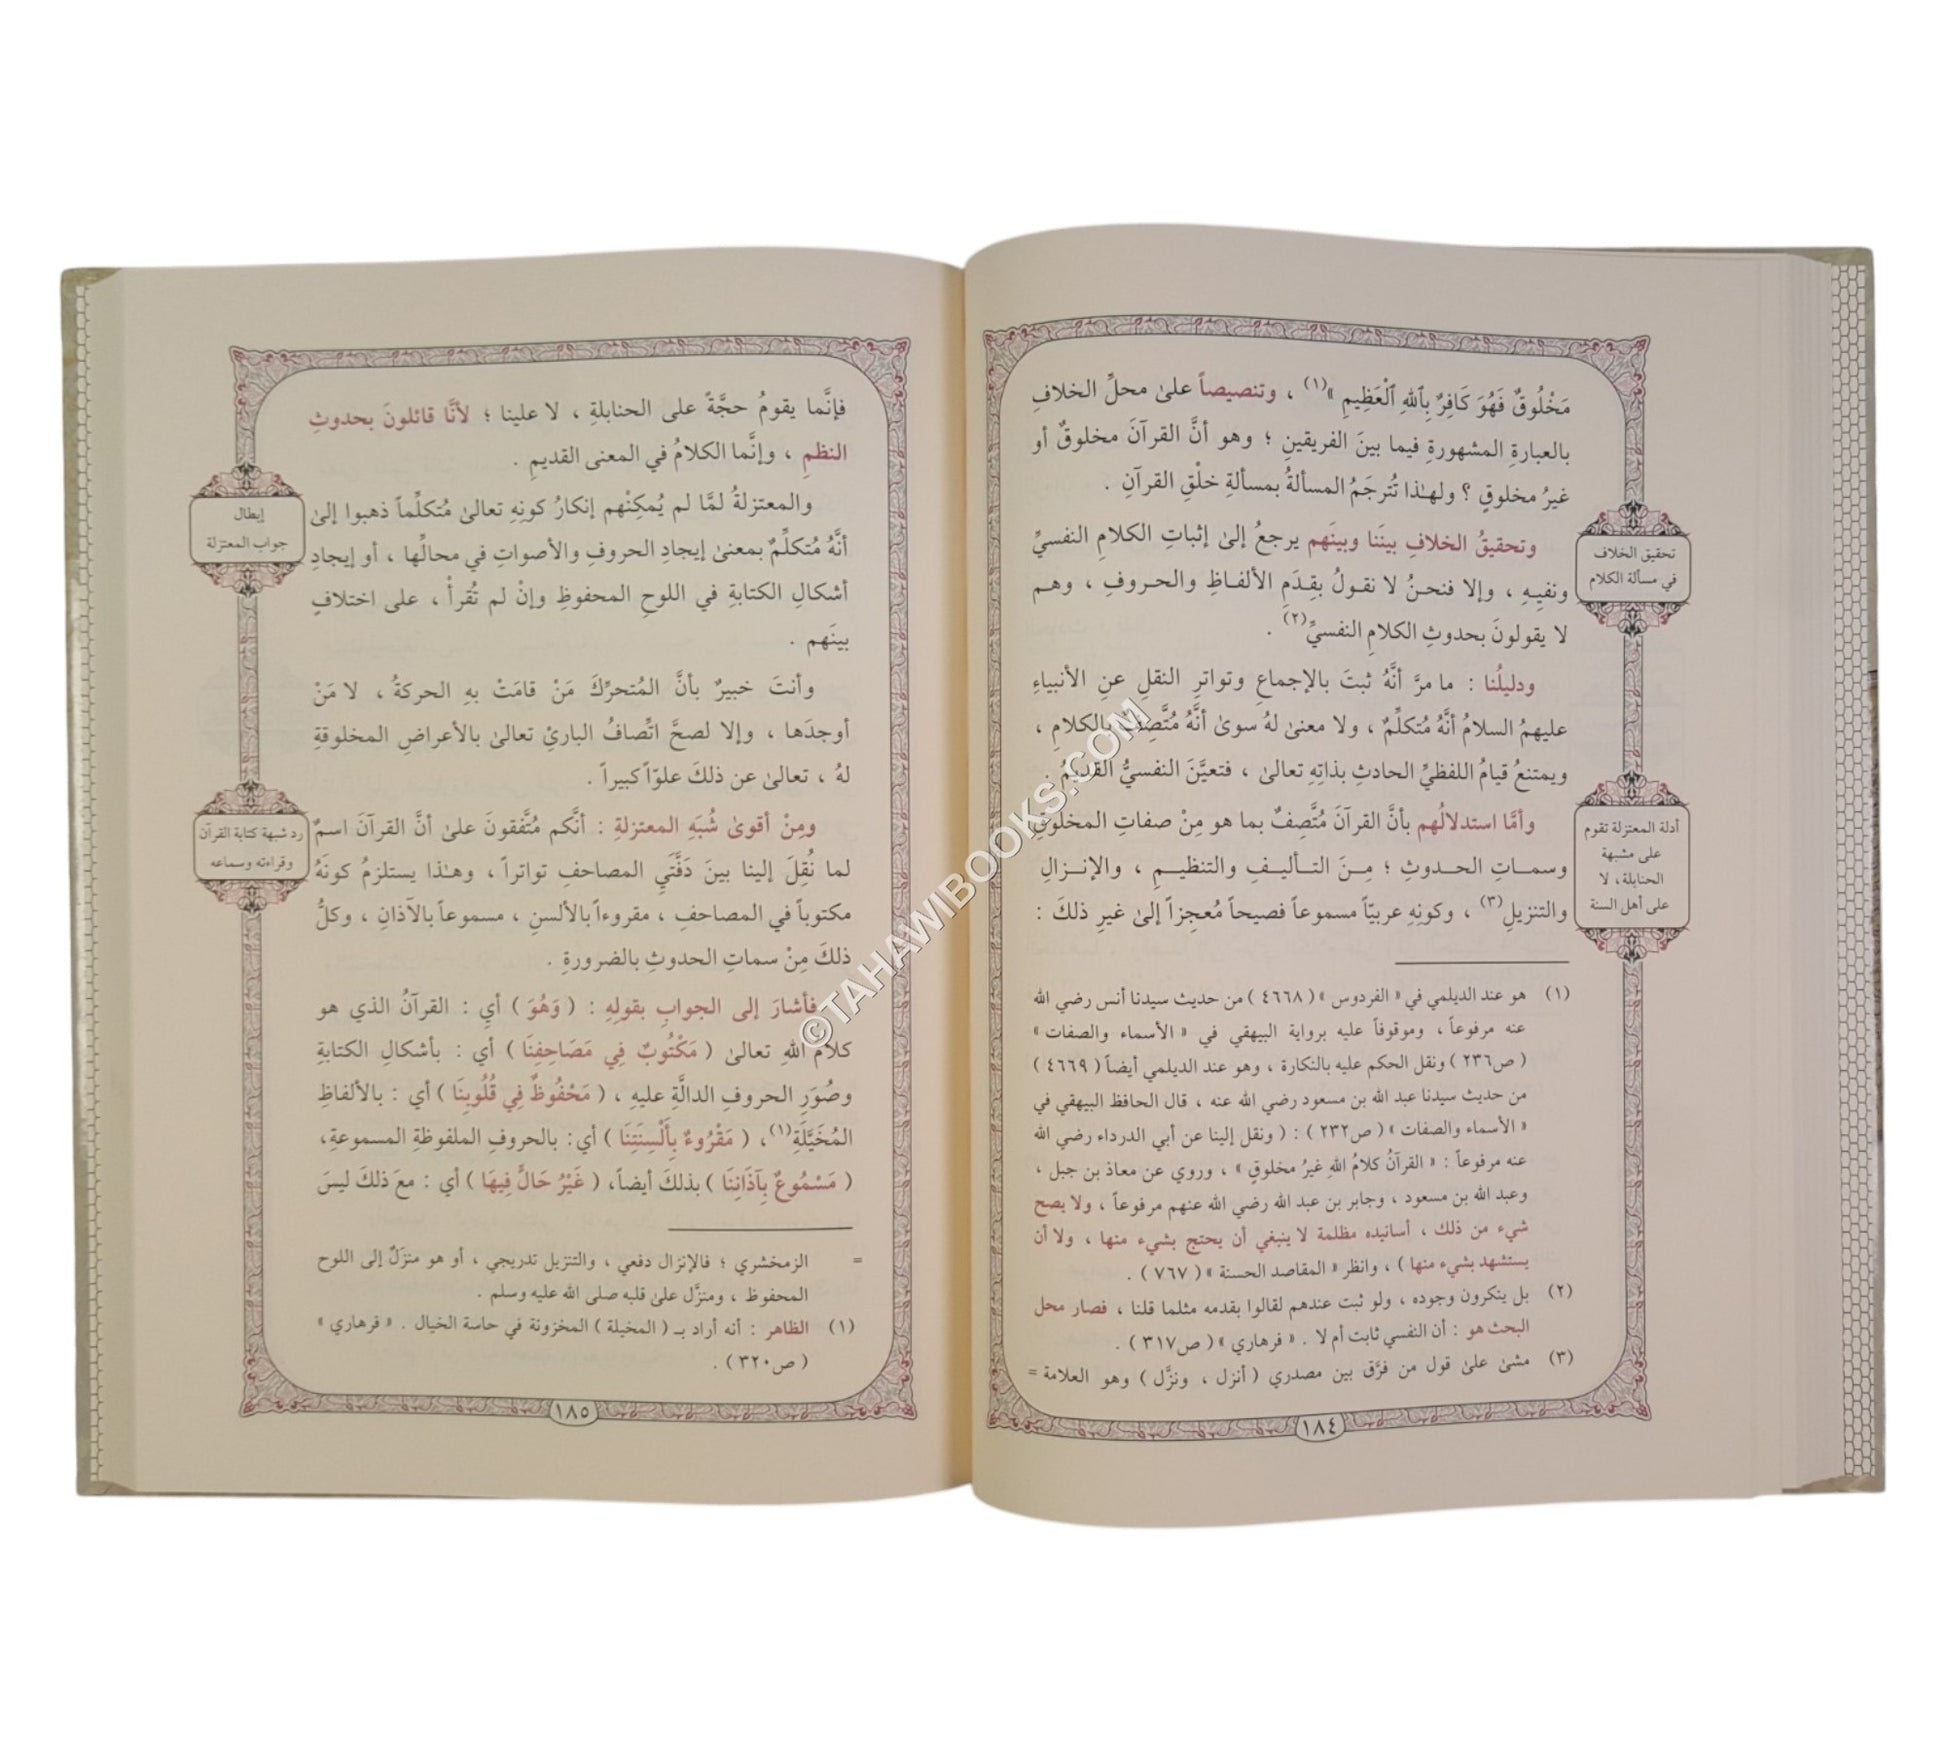 مَخْلُوقٌ فَهُوَ كَافِرٌ بِٱللهِ ٱلْعَظِيمِ »(١) ، وتنصيصاً علىٰ محلِّ الخلافِ
بالعبارةِ المشهورةِ فيما بينَ الفريقينِ ؛ وهو أنَّ القرآنَ مخلوقٌ أو
غيرُ مخلوقٍ ؟ ولهـٰذا تُترجَمُ المسألةُ بمسألةِ خلْقِ القرآنِ .
وتحقيقُ الخلافِ بينَنا وبينَهم يرجعُ إلىٰ إثباتِ الكلامِ النفسيِّ
ونفيِهِ ، وإلا فنحنُ لا نقولُ بقِدَمِ الألفاظِ والحروفِ ، وهم
لا يقولونَ بحدوثِ الكلامِ النفسيِّ(٢) .
ودليلُنا : ما مرَّ أنَّهُ ثبتَ بالإجماعِ وتواترِ النقلِ عنِ الأنبياءِ
عليهمُ السلامُ أنَّهُ مُتكلِّمٌ ، ولا معنىٰ لهُ سوىٰ أنَّهُ مُتَّصِفٌ بالكلامِ ،
ويمتنعُ قيامُ اللفظيِّ الحادثِ بذاتِهِ تعالىٰ ، فتعيَّنَ النفسيُّ القديمُ .
وأمَّا استدلالُهم بأنَّ القرآنَ مُتَّصِفٌ بما هو مِنْ صفاتِ المخلوقِ
وسماتِ الحدوثِ ؛ مِنَ التأليفِ والتنظيمِ ، والإنزالِ
والتنزيلِ(٣) ، وكونِهِ عربيّاً مسموعاً فصيحاً مُعجِزاً إلىٰ غيرِ ذلكَ :
تحقيق الخلاف
في مسألة الكلام
أدلة المعتزلة تقوم
على مشبهة
الحنابلة ، لا
على أهل السنة
(١) هو عند الديلمي في « الفردوس » ( ٤٦٦٨ ) من حديث سيدنا أنس رضي الله
عنه مرفوعاً ، وموقوفاً عليه برواية البيهقي في « الأسماء والصفات »
( ص٢٣٦ ) ونقل الحكم عليه بالنكارة ، وهو عند الديلمي أيضاً ( ٤٦٦٩ )
من حديث سيدنا عبد الله بن مسعود رضي الله عنه ، قال الحافظ البيهقي في
« الأسماء والصفات » ( ص٢٣٢ ) : ( ونقل إلينا عن أبي الدرداء رضي الله
عنه مرفوعاً : « القرآنُ كلامُ اللهِ غيرُ مخلوقٍ » ، وروي عن معاذ بن جبل ،
وعبد الله بن مسعود ، وجابر بن عبد الله رضي الله عنهم مرفوعاً ، ولا يصح
شيء من ذلك ، أسانيده مظلمة لا ينبغي أن يحتج بشيء منها ، ولا أن
يستشهد بشيء منها ) ، وانظر « المقاصد الحسنة » ( ٧٦٧ ) .
(٢) بل ينكرون وجوده ، ولو ثبت عندهم لقالوا بقدمه مثلما قلنا ، فصار محل
البحث هو : أن النفسي ثابت أم لا . « فرهاري » ( ص٣١٧ ) .
(٣) مشىٰ علىٰ قول من فرَّق بين مصدري ( أنزل ، ونزَّل ) وهو العلامة =
١٨٤
فإنَّما يقومُ حجَّةً على الحنابلةِ ، لا علينا ؛ لأنَّا قائلونَ بحدوثِ
النظمِ ، وإنَّما الكلامُ في المعنى القديمِ .
والمعتزلةُ لمَّا لم يُمكِنْهم إنكارُ كونِهِ تعالىٰ مُتكلِّماً ذهبوا إلىٰ
أنَّهُ مُتكلِّمٌ بمعنىٰ إيجادِ الحروفِ والأصواتِ في محالِّها ، أو إيجادِ
أشكالِ الكتابةِ في اللوحِ المحفوظِ وإنْ لم تُقرأْ ، على اختلافٍ
بينَهم .
وأنتَ خبيرٌ بأنَّ المُتحرِّكَ مَنْ قامَتْ بهِ الحركةُ ، لا مَنْ
أوجدَها ، وإلا لصحَّ اتِّصافُ البارئِ تعالىٰ بالأعراضِ المخلوقةِ
لهُ ، تعالىٰ عن ذلكَ علوّاً كبيراً .
ومِنْ أقوىٰ شُبَهِ المعتزلةِ : أنَّكم مُتَّفقونَ علىٰ أنَّ القرآنَ اسمٌ
لما نُقِلَ إلينا بينَ دَفَّتَيِ المصاحفِ تواتراً ، وهـٰذا يستلزمُ كونَهُ
مكتوباً في المصاحفِ ، مقروءاً بالألسنِ ، مسموعاً بالآذانِ ، وكلُّ
ذلكَ مِنْ سماتِ الحدوثِ بالضرورةِ .
فأشارَ إلى الجوابِ بقولِهِ : ( وَهُوَ ) أيِ : القرآنُ الذي هو
كلامُ اللهِ تعالىٰ ( مَكْتُوبٌ فِي مَصَاحِفِنَا ) أي : بأشكالِ الكتابةِ
وصُوَرِ الحروفِ الدالَّةِ عليهِ ، ( مَحْفُوظٌ فِي قُلُوبِنَا ) أي : بالألفاظِ
المُخَيَّلَةِ(١) ، ( مَقْرُوءٌ بِأَلْسِنَتِنَا ) أي : بالحروفِ الملفوظةِ المسموعةِ ،
( مَسْمُوعٌ بِآذَانِنَا ) بذلكَ أيضاً، ( غَيْرُ حَالٍّ فِيهَا ) أي : معَ ذلكَ ليسَ
إبطال
جواب المعتزلة
رد شبهة كتابة القرآن
وقراءته وسماعه
= الزمخشري ؛ فالإنزال دفعي ، والتنزيل تدريجي ، أو هو منزَلٌ إلى اللوح
المحفوظ ، ومنزَّل علىٰ قلبه صلى الله عليه وسلم .
(١) الظاهر : أنه أراد بـ ( المخيلة ) المخزونة في حاسة الخيال . « فرهاري »
( ص٣٢٠ ) .
١٨٥
©TAHAWIBOOKS.COM